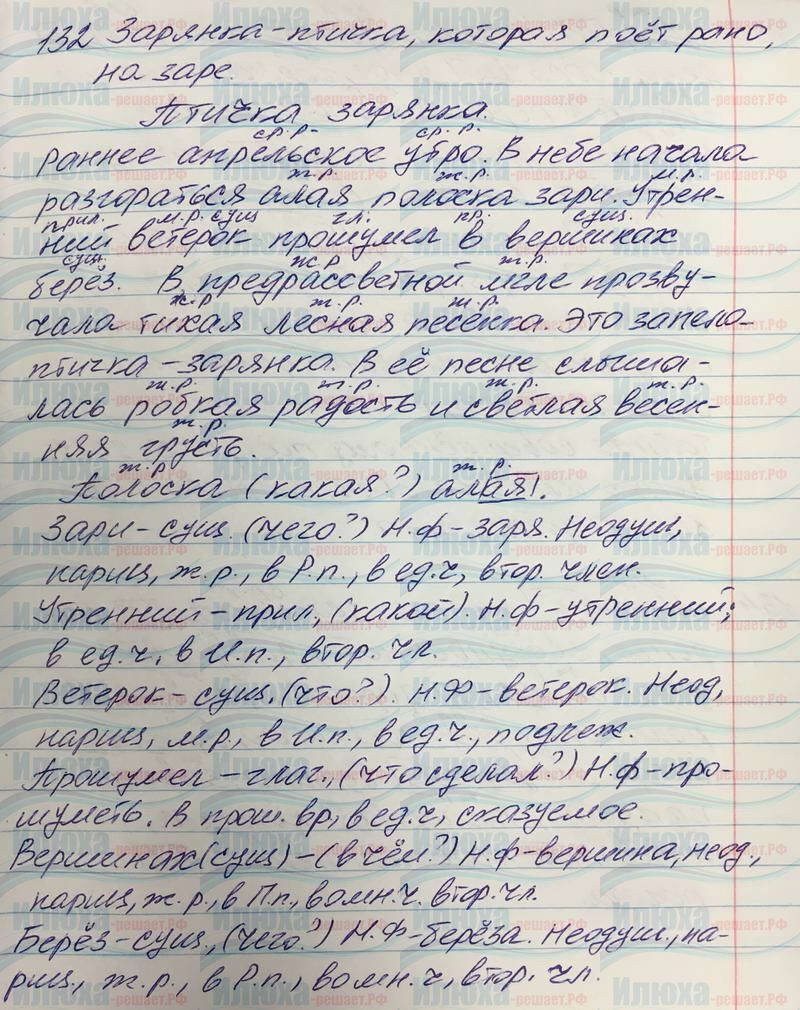 132 Зарянка-птичка, которая поёт рано,
на заре.
Птичка зарянка.
ср.р. ср.р.
раннее апрельское утро. В небе начала
ж.р. ж.р. м.р.
разгораться алая полоска зари. Утрен-
прил. м.р. сущ гл. пр. сущ.
ний ветерок прошумел в вершинах
сущ. ж.р ж.р.
берёз. В предрассветной мгле прозву-
ж.р ж.р. ж.р.
чала тихая лесная песенка. Это запела
птичка-зарянка. В её песне слыша-
ж.р. ж.р. ж.р. ж.р.
лась робкая радость и светлая весен-
ж.р.
няя грусть.
ж.р ж.р.
Полоска (какая?) алая.
Зари-сущ. (чего?) Н.ф-заря. Неодуш,
нариц, ж.р., в Р.п., в ед.ч, втор. член.
Утренний-прил, (какой). Н.ф-утренний;
в ед.ч, в И.п., втор. чл.
Ветерок-сущ. (что?). Н.Ф-ветерок. Неод,
нариц, м.р., в И.п., в ед.ч., подлеж.
Прошумел-глаг., (что сделал?) Н.ф-про-
шуметь. В прош. вр, в ед.ч, сказуемое.
Вершинах(сущ)-(в чём?) Н.ф-вершина, неод.,
нариц, ж.р., в П.п., во мн.ч. втор. чл.
Берёз-сущ., (чего?) Н.Ф-берёза. Неодуш., на-
риц., ж.р., в Р.п., во мн.ч, втор. чл.